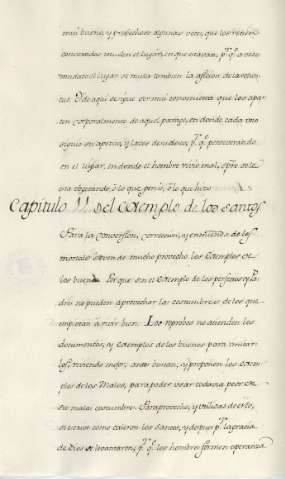 mui bueno, y probechoso algunas veces, que los recien
convertidos muden el lugar, en que estavan, p.q. a veces
mudado el lugar se muda tambien la aficion de la volun-
tad. De aqui es que ser mui conveniente que los apar-
ten corporalmente de aquel parage, en donde cada uno
siguio sus apetitos, y lazos del p.q. perseverando
en el lugar, en donde el hombre vivio mal, siempre se le
esta objetando, o lo que penso, o lo que hizo
Capitulo 11 Del Exemplo de los santos
Para la conversion, correccion, y enmienda de los
mortales sirven de mucho provecho los Exemplos de
los buenos. Porque sin el Exemplo de los perfectos y Pa-
dres no pueden aprovechar las costumbres de los que
empiezan à vivir bien. Los reprobos no atienden los
documentos, y Exemplos de los buenos para imitar
los, viviendo mejor, antes buscan, y proponen los Exem-
plos de los Malos, para poder usar todavia peor de
sus malas costumbres. Para provecho, y utilidad de esto,
se escrive como caieron los santos, y despues p.r la gracia
de Dios se levantaron, p.a q.e los hombres formen esperanza